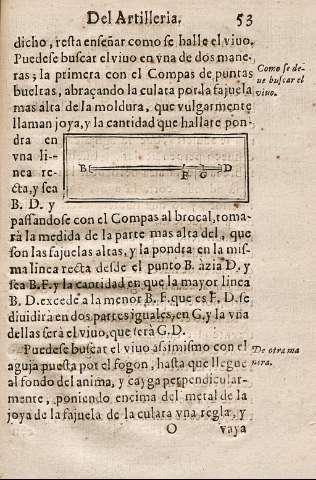 Del Artilleria. 53
dicho, resta enseñar como se halle el viuo.
Puedese buscar el viuo en vna de dos mane-
ras; la primera con el Compas de puntas
bueltas, abraçando la culata por la fajuela
mas alta de la moldura, que vulgarmente
llaman joya, y la cantidad que hallare pon-
Como se de-
ue buscar el
viuo.
drà en
vna li-
nea re-
cta, y sea
B. D. y
B F G D
passandose con el Compas al brocal, toma-
rà la medida de la parte mas alta del, que
son las fajuelas altas, y la pondra en la mis-
ma linea recta desde el punto B. àzia D, y
sea B. F. y la cantidad en que la mayor linea
B. D. excede a la menor B. F. que es F. D. se
diuidirà en dos partes iguales, en G, y la vna
dellas serà el viuo, que serà G. D.
Puedese buscar el viuo assimismo con el
aguja puesta por el fogon, hasta que llegue
al fondo del anima, y cayga perpendicular-
mente, poniendo encima del metal de la
joya de la fajuela de la culata vna regla, y
De otra ma
nera.
O vaya